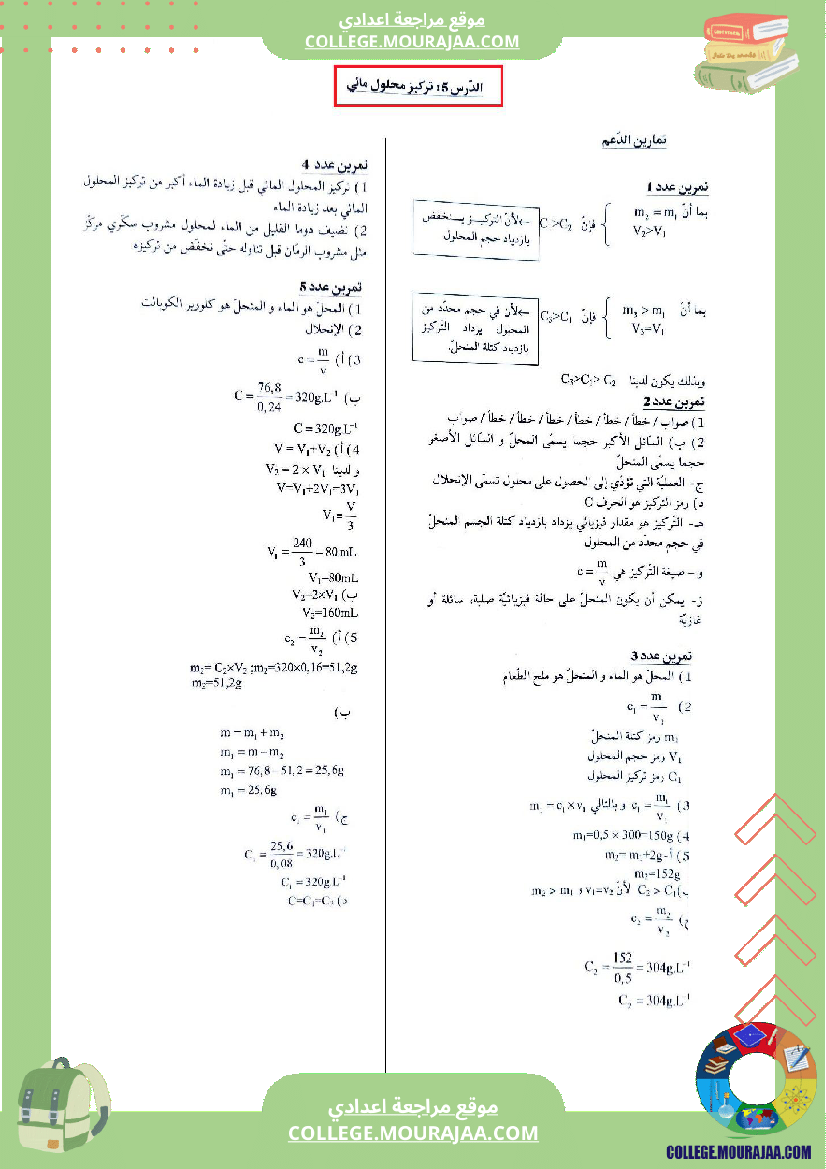 موقع مراجعة اعدادي
COLLEGE.MOURAJAA.COM
الدّرس 5: تركيز محلول مائي
تمارين الدّعم
تمرين عدد 1
بما أنّ m₂ = m₁
V₂>V₁
فإنّ C₁>C₂
->لأنّ التركيز ينخفض
بازدياد حجم المحلول
بما أنّ m₃ > m₁
V₃=V₁
فإنّ C₃>C₁
->لأن في حجم محدّد من
المحلول يزداد التّركيز
بازدياد كتلة المنحلّ.
وبذلك يكون لدينا C₃>C₁> C₂
تمرين عدد 2
1) صواب / خطأ / خطأ / خطأ / خطأ / خطأ / صواب
2) ب) السّائل الأكبر حجما يسمّى المحلّ و السّائل الأصغر
حجما يسمّى المنحلّ
ج- العمليّة التي تؤدّي إلى الحصول على محلول تسمّى الإنحلال
د) رمز التركيز هو الحرف C
هـ- التّركيز هو مقدار فيزيائي يزداد بازدياد كتلة الجسم المنحلّ
في حجم محدّد من المحلول
و – صيغة التّركيز هي c = m/v
ز- يمكن أن يكون المنحلّ على حالة فيزيائيّة صلبة، سائلة أو
غازيّة
تمرين عدد 3
1) المحلّ هو الماء و المنحلّ هو ملح الطّعام
2) c₁ = m/v₁
m₁ رمز كتلة المنحلّ
V₁ رمز حجم المحلول
C₁ رمز تركيز المحلول
3) c₁ = m₁/v₁ و بالتالي m₁ = c₁ x v₁
4) m₁=0,5 x 300=150g
5) أ- m₂= m₁+2g
m₂=152g
ب) C₂ > C₁ لأنّ v₁=v₂ و m₂ > m₁
ج) c₂ = m₂/v₂
C₂ = 152/0,5 = 304g.L⁻¹
C₂ = 304g.L⁻¹
تمرين عدد 4
1) تركيز المحلول المائي قبل زيادة الماء أكبر من تركيز المحلول
المائي بعد زيادة الماء
2) نضيف دوما القليل من الماء لمحلول مشروب سكّري مركّز
مثل مشروب الرمّان قبل تناوله حتّى نخفّض من تركيزه
تمرين عدد 5
1) المحلّ هو الماء و المنحلّ هو كلورير الكوبالت
2) الإنحلال
3) أ) c = m/v
ب) C = 76,8/0,24 = 320g.L⁻¹
C = 320g.L⁻¹
4) أ) V = V₁+V₂
و لدينا V₂ = 2 × V₁
V=V₁+2V₁=3V₁
V₁ = V/3
V₁ = 240/3 = 80 mL
V₁=80mL
ب) V₂=2xV₁
V₂=160mL
5) أ) c₂ = m₂/v₂
m₂= C₂×V₂ ;m₂=320x0,16=51,2g
m₂=51,2g
ب)
m = m₁ + m₂
m₁ = m − m₂
m₁ = 76,8 − 51,2 = 25,6g
m₁ = 25,6g
ج) c₁ = m₁/v₁
C₁ = 25,6/0,08 = 320g.L⁻¹
C₁ = 320g.L⁻¹
د) C=C₁=C₂
موقع مراجعة اعدادي
COLLEGE.MOURAJAA.COM
COLLEGE.MOURAJAA.COM